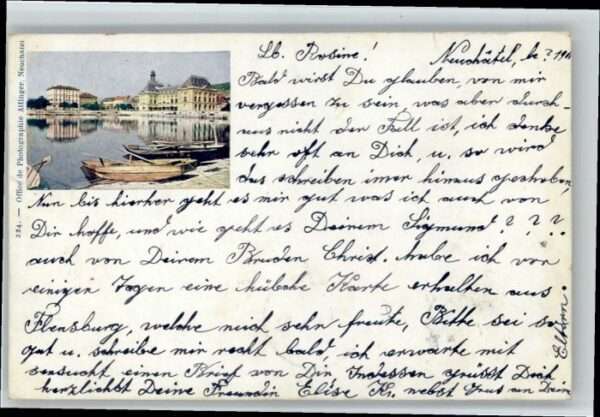 224. — Office de Photographie Attinger, Neuchatel
Lb. Rosine! Neuchâtel, 190
Bald wirst Du glauben, von mir
vergessen zu sein, was aber durch-
aus nicht der Fall ist, ich denke
sehr oft an Dich, u. so wird
das schreiben imer hinaus geschoben,
Nun bis hierher geht es mir gut was ich auch von
Dir hoffe, und wie geht es Deinem Sigmund? ? ?
auch von Deinem Bruder Christ. habe ich vor
einigen Tagen eine hübsche Karte erhalten aus
Flensburg, welche mich sehr freute, Bitte sei so
gut u. schreibe mir recht bald, ich erwarte mit
sensucht einen Brief von Dir Indessen grüsst Dich
herzlichst Deine Freundin Elise Kr. nebst Grus an Dein
Eltern.